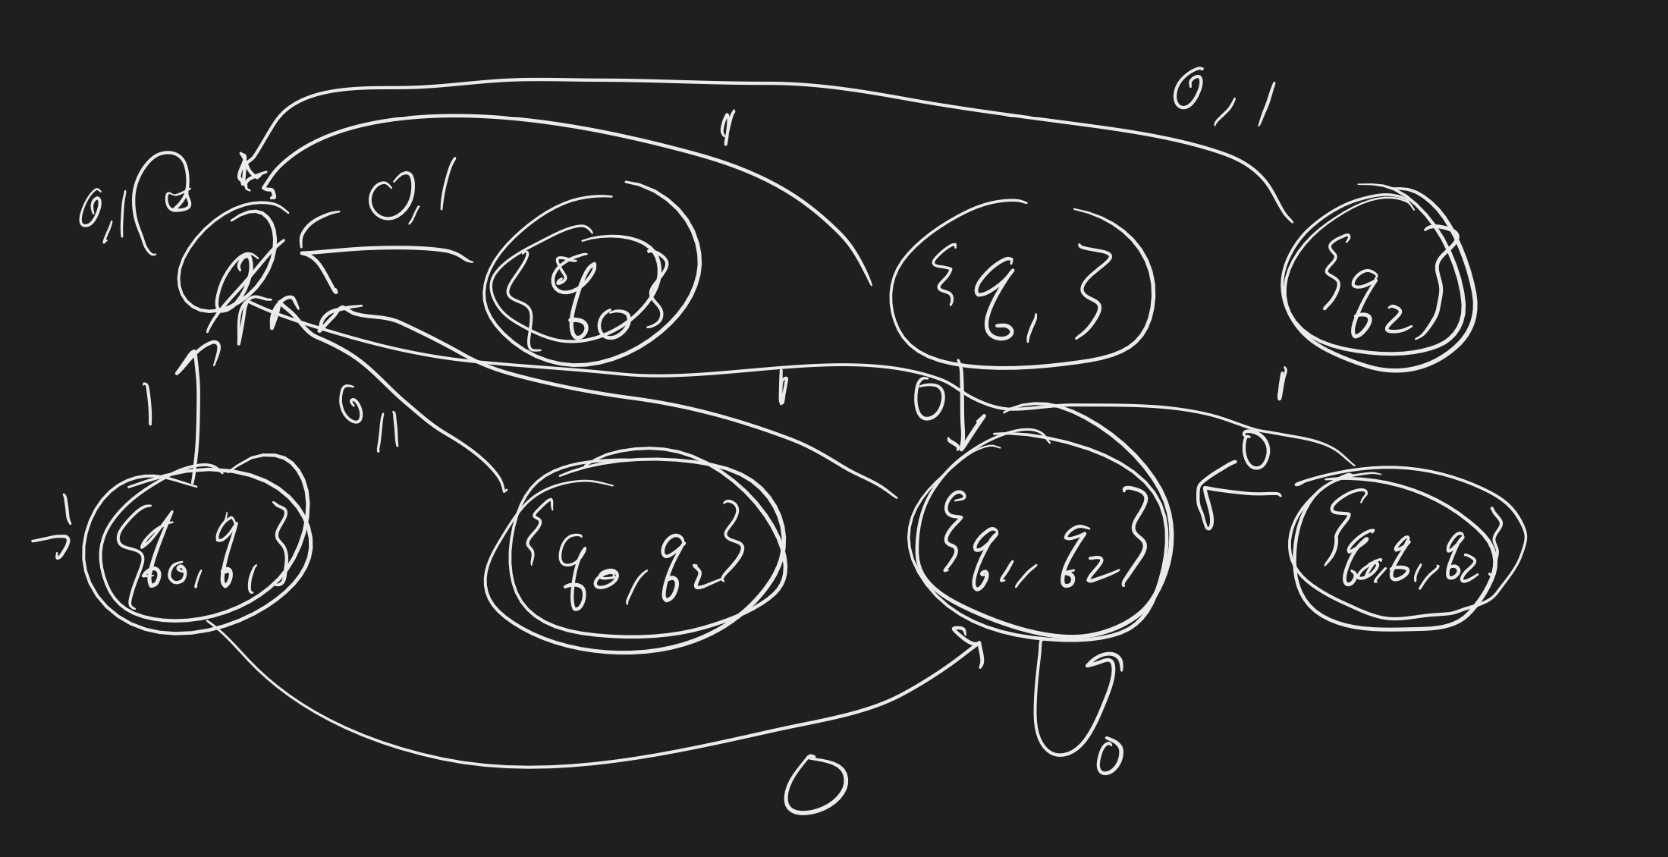 0, 1
1
0, 1
0, 1
∅
{q0}
{q1}
{q2}
1
0, 1
1
0
1
0
{q0, q1}
{q0, q2}
{q1, q2}
{q0, q1, q2}
0
0